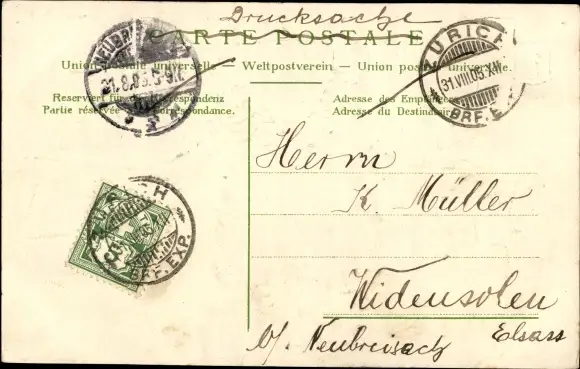 Drucksache
CARTE POSTALE
Union postale universelle. — Weltpostverein — Union postale universelle.
Reserviert für Correspondenz
Partie réservée correspondance.
Adresse des Empfängers
Adresse du Destinataire
31.8.05.5-9V.
ZÜRICH
31.VIII.05.XII
BRF.EXP.
Herrn
K. Müller
ZÜRICH
BRF.EXP.
5
Widensolen
b/ Neubreisach Elsass